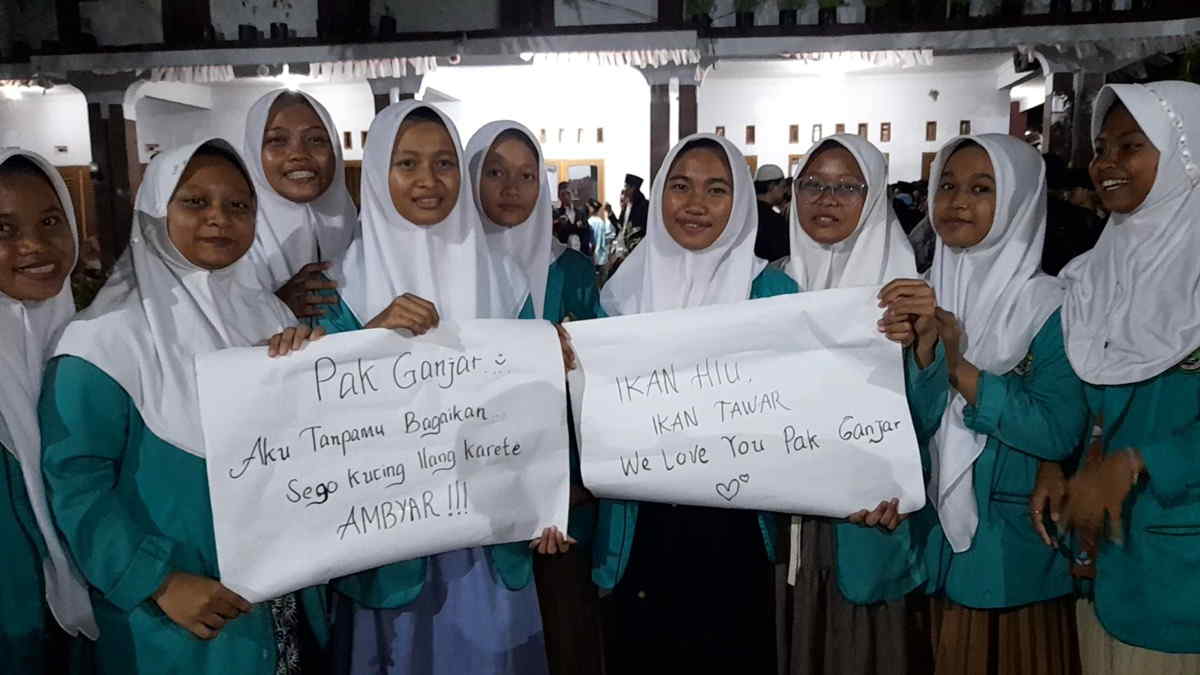 Pak Ganjar...
Aku Tanpamu Bagaikan...
Sego Kucing Ilang Karete
AMBYAR!!!
IKAN HIU,
IKAN TAWAR
We Love You Pak Ganjar